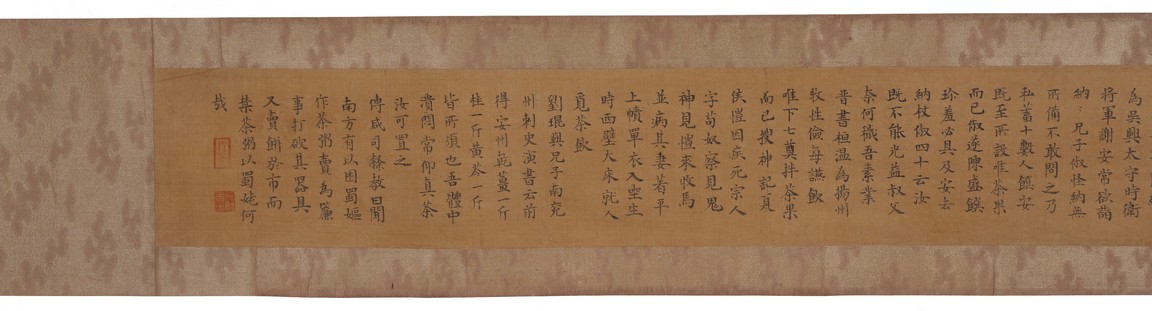 為吳興太守時衛
將軍謝安常欲詣
納 兄子俶怪納無
所備不敢問之乃
私蓄十數人饌安
既至所設唯茶果
而已俶遂陳盛饌
珍羞必具及安去
納杖俶四十云汝
既不能光益叔父
柰何穢吾素業
晉書桓溫為揚州
牧性儉每讌飲
唯下七奠拌茶果
而已搜神記夏
侯愷因疾死宗人
字苟奴察見鬼
神見愷來收馬
並病其妻著平
上幘單衣入坐生
時西壁大床就人
覓茶飲
劉琨與兄子南兗
州刺史演書云前
得安州乾薑一斤
桂一斤黃芩一斤
皆所須也吾體中
潰悶常仰真茶
汝可置之
傅咸司隸教曰聞
南方有以困蜀嫗
作茶粥賣為簾
事打破其器具
又賣餅於市而
禁茶粥以蜀姥何
哉